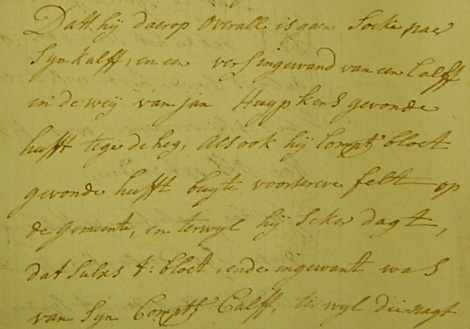 Datt hij daerop overall is gaen soeke nae
syn kalff, en een versingewand van een Calff
in de weij van jan Huypkens gevonde
heefft tege de heg, als ook hij Compt bloet
gevonde hefft buyte voorscreve felt op
de gemeente, en terwyl hij seker dagt,
dat sulxs t: bloet, ende ingewant was
van syn Compts Calff, terwyl die nagt